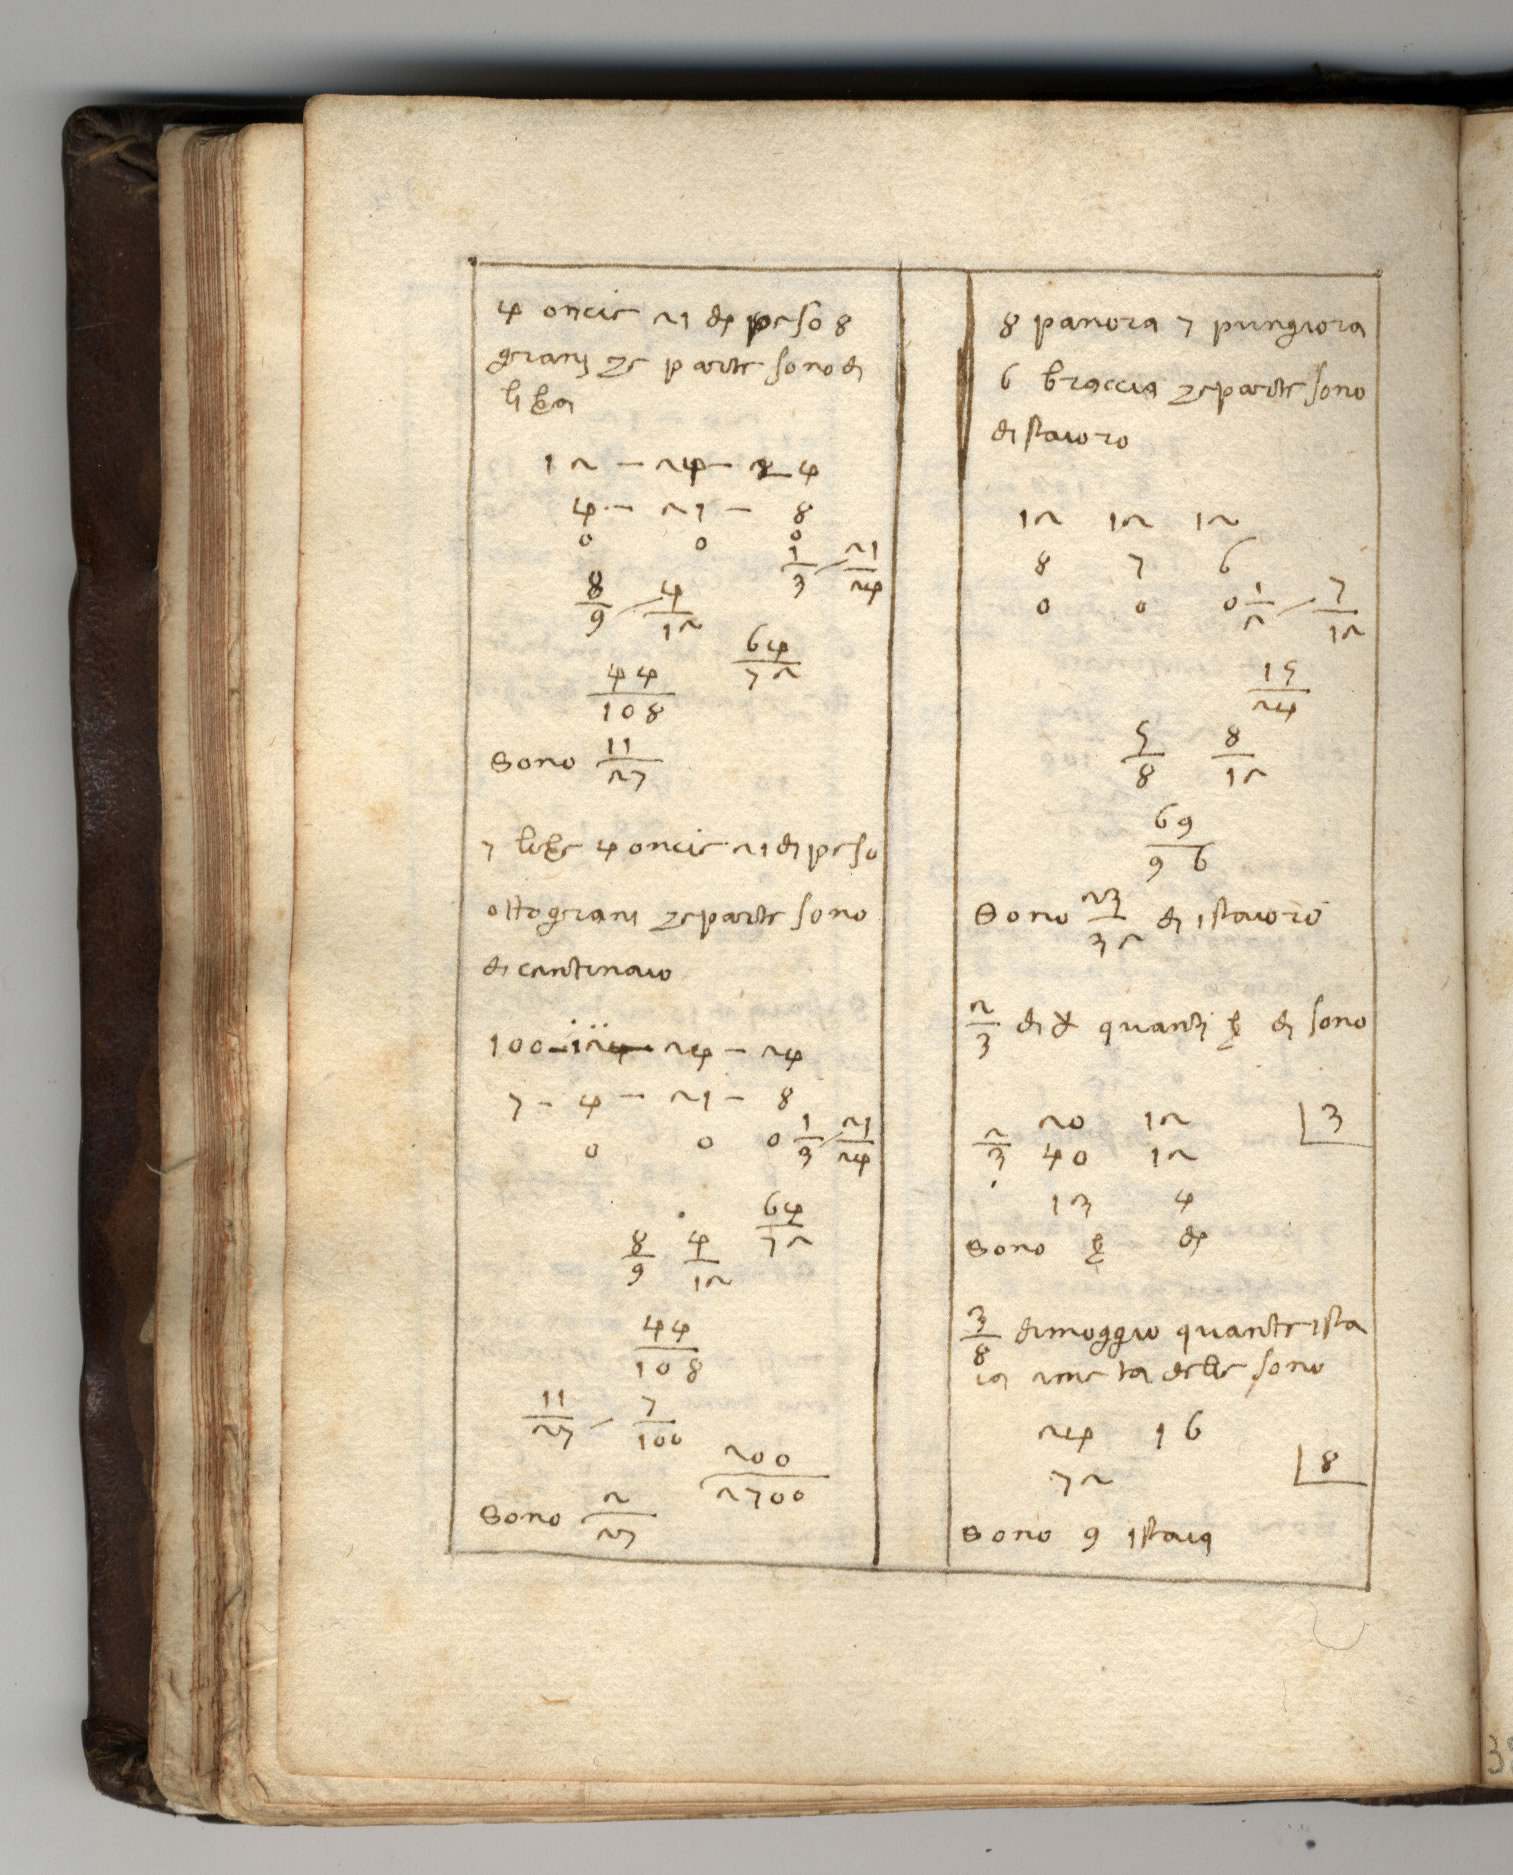 4 oncie 21 dp peso 8
grani ze parte sono di
libra
12 — 24 — 24
4 — 21 — 8
0 0 0 1/3 21/24
8/9 4/12
64/72
44/108
Sono 11/27
7 libre 4 oncie 21 di peso
otto grani ze parte sono
di centinaio
100 - 12 24 — 24
7 - 4 — 21 — 8
0 0 0 1/3 21/24
64/72
8/9 4/12
44/108
11/27 7/100
200/2700
Sono 2/27
8 panora 7 pungiora
6 braccia ze parte sono
di staioro
12 12 12
8 7 6
0 0 0 1/2 7/12
15/24
5/8 8/12
69/96
Sono 23/32 di istaioro
2/3 di quanti di sono
20 12 3
2/3 40 12
13 4
Sono
3/8 di moggio quante ista
ia e meta delle sono
24 16
72 8
Sono 9 istaia